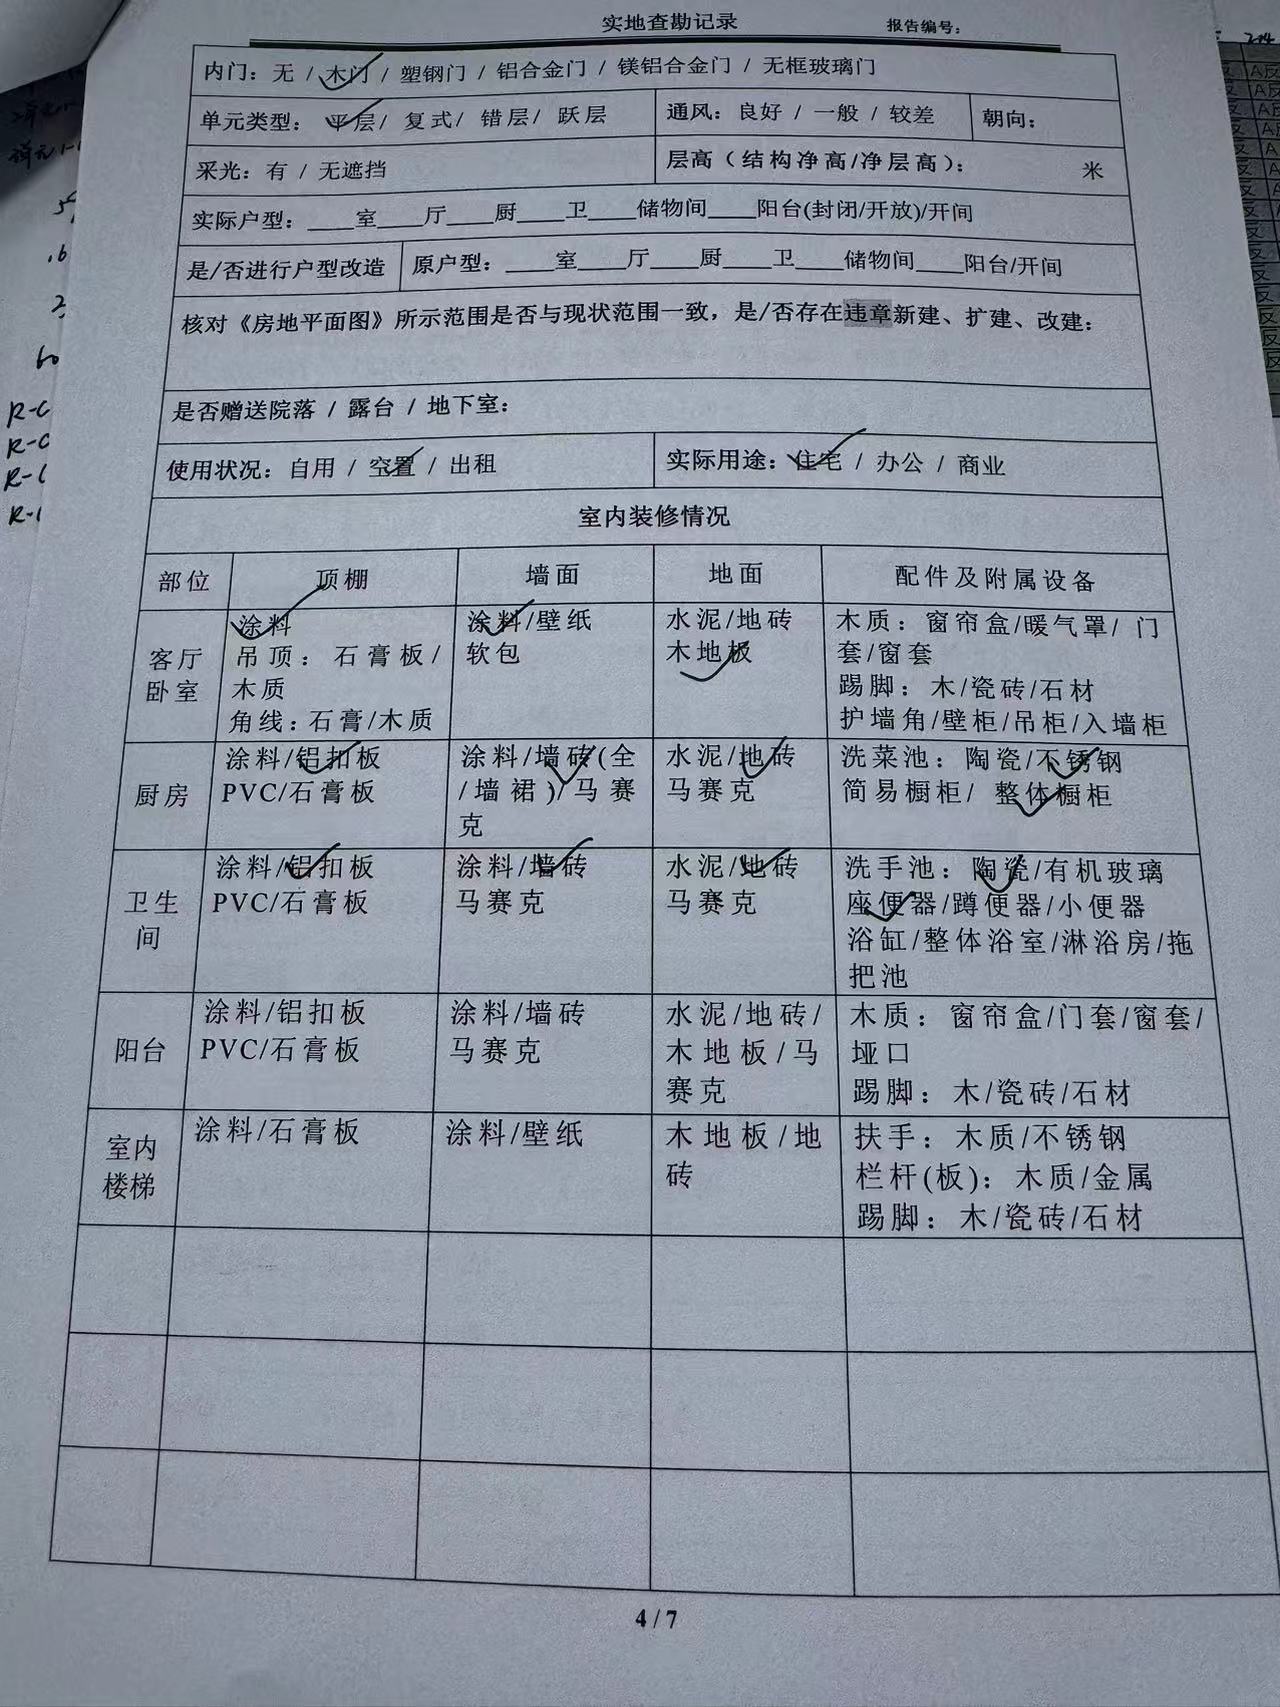 实地查勘记录
报告编号：
内门：无 / 木门 / 塑钢门 / 铝合金门 / 镁铝合金门 / 无框玻璃门
单元类型：平层/ 复式/ 错层/ 跃层
通风：良好 / 一般 / 较差
朝向：
采光：有 / 无遮挡
层高（结构净高/净层高）：
米
实际户型：____室____厅____厨____卫____储物间____阳台(封闭/开放)/开间
是/否进行户型改造
原户型：____室____厅____厨____卫____储物间____阳台/开间
核对《房地平面图》所示范围是否与现状范围一致，是/否存在违章新建、扩建、改建：
是否赠送院落 / 露台 / 地下室：
使用状况：自用 / 空置 / 出租
实际用途：住宅 / 办公 / 商业
室内装修情况
部位
顶棚
墙面
地面
配件及附属设备
客厅
卧室
涂料
吊顶：石膏板/
木质
角线：石膏/木质
涂料/壁纸
软包
水泥/地砖
木地板
木质：窗帘盒/暖气罩/ 门
套/窗套
踢脚：木/瓷砖/石材
护墙角/壁柜/吊柜/入墙柜
厨房
涂料/铝扣板
PVC/石膏板
涂料/墙砖(全
/墙裙)/马赛
克
水泥/地砖
马赛克
洗菜池：陶瓷/不锈钢
简易橱柜/ 整体橱柜
卫生
间
涂料/铝扣板
PVC/石膏板
涂料/墙砖
马赛克
水泥/地砖
马赛克
洗手池：陶瓷/有机玻璃
座便器/蹲便器/小便器
浴缸/整体浴室/淋浴房/拖
把池
阳台
涂料/铝扣板
PVC/石膏板
涂料/墙砖
马赛克
水泥/地砖/
木地板/马
赛克
木质：窗帘盒/门套/窗套/
垭口
踢脚：木/瓷砖/石材
室内
楼梯
涂料/石膏板
涂料/壁纸
木地板/地
砖
扶手：木质/不锈钢
栏杆(板)：木质/金属
踢脚：木/瓷砖/石材
4 / 7